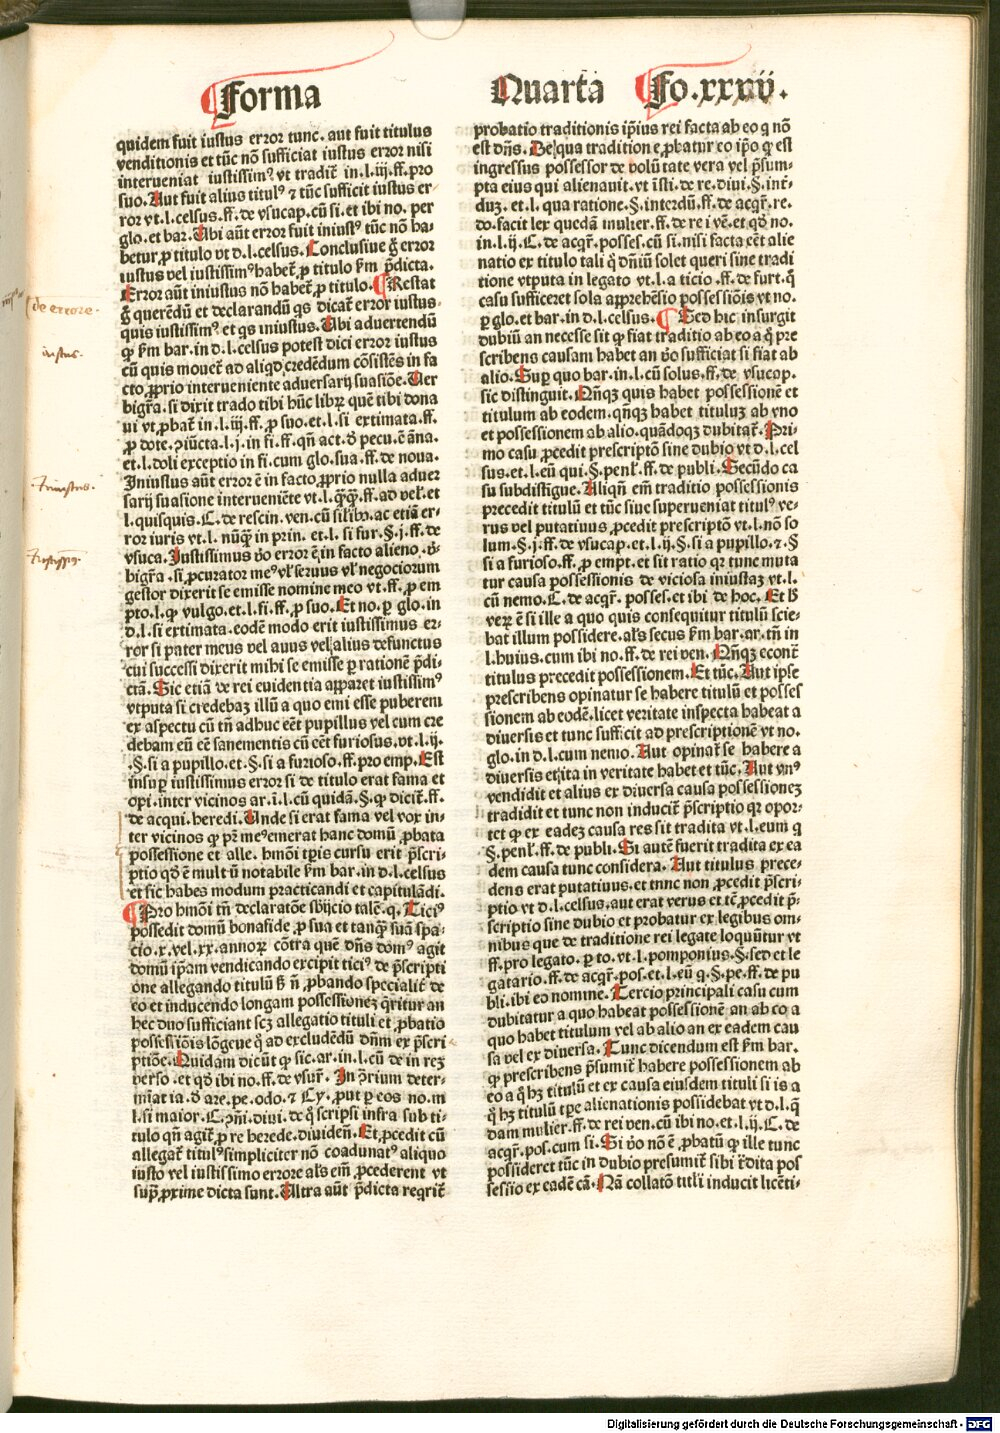 Forma
Quarta Fo.xxxvij.
quidem fuit iustus error tunc. aut fuit titulus
venditionis et tūc nō sufficiat iustus error nisi
interueniat iustissimꝰ vt tradit̄ in.l.iij.ff.pro
suo. Aut fuit alius titulꝰ ⁊ tūc sufficit iustus er⸗
ror vt.l.celsus.ff.de vsucap.cū si.et ibi no. per
glo.et bar. Ubi aūt error fuit iniustꝰ tūc nō ha⸗
betur ꝓ titulo vt d.l.celsus. Conclusiue g̊ error
iustus vel iustissimꝰ habet̄ ꝓ titulo ẜm p̄dicta.
Error aūt iniustus nō habet̄ ꝓ titulo. Restat
g̊ querēdū et declarandū q̄s dicat̄ error iustus
quis iustissimꝰ et q̄s iniustus. Ubi aduertendū
ꝙ ẜm bar.in d.l.celsus potest dici error iustus
cū quis mouet̄ ad aliqd̓ credēdum cōsistēs in fa
cto ꝓprio interueniente aduersarij suasiōe. Uer
bigr̄a.si dixit trado tibi hūc libꝝ quē tibi dona
ui vt ꝓbat̄ in.l.iij.ff.ꝓ suo.et.l.si extimata.ff.
ꝓ dote.ꝯiūcta.l.j.in fi.ff.qn̄ act.d̓ pecu.ē āna.
et.l.doli exceptio in fi.cum glo.sua.ff.de noua.
Iniustus aūt error ē in facto ꝓprio nulla aduer
sarij suasione interueniēte vt.l.q̄q̄.ff.ad vel̄.et
l.quisquis.C.de rescin.ven.cū silibꝰ.ac etiā er⸗
ror iuris vt.l.nūq̄ in prin.et.l.si fur.§.j.ff.de
vsuca. Iustissimus v̓o error ē in facto alieno.v̓⸗
bigr̄a.si ꝓcurator meꝰ vl̓ seruus vl̓ negociorum
gestor dixerit se emisse nomine meo vt.ff.ꝓ em
pto.l.ꝙ vulgo.et.l.fi.ff.ꝓ suo. Et no.ꝑ glo.in
d.l.si extimata.eodē modo erit iustissimus er⸗
ror si pater meus vel auus vel alius defunctus
cui successi dixerit mihi se emisse ꝑ rationē p̄di⸗
ctā. Sic etiā de rei euidentia apparet iustissimꝰ
vtputa si credebaꝫ illū a quo emi esse puberem
ex aspectu cū tn̄ adhuc eēt pupillus vel cum cre
debam eū eē sanementis cū eēt furiosus.vt.l.ij.
.§.si a pupillo.et.§.si a furioso.ff.pro emp. Est
insuꝑ iustissimus error si de titulo erat fama et
opi.inter vicinos ar.i.l.cū quidā.§.ꝙ dicit̄.ff.
de acqui.heredi. Unde si erat fama vel vox in⸗
ter vicinos ꝙ pr̄ meꝰ emerat hanc domū ꝓbata
possessione et alle. hmōi tp̄is cursu erit p̄scri⸗
ptio qd̓ ē multū notabile ẜm bar.in d.l.celsus
et sic habes modum practicandi et capitulādi.
Pro hmōi tn̄ declaratōe sb̓ijcio talē.q. Ticiꝰ
possedit domū bonafide ꝓ sua et tanq̄ suā spa⸗
cio.x.vel.xx.annoꝝ cōtra quē dn̄s domꝰ agit
domū ip̄am vendicando excipit ticiꝰ de p̄scripti
one allegando titulū ẜ n̄ ꝓbando specialit̄ de
eo et inducendo longam possessioneꝫ q̄ritur an
hec duo sufficiant scꝫ allegatio tituli et ꝓbatio
possessiōis lōgeue q̄ ad excludēdū dn̄m ex p̄scri
ptiōe. Quidam dicūt ꝙ sic.ar.in.l.cū de in reꝫ
verso.et qd̓ ibi no.ff.de vsur̄. In ꝯ̄rium deter⸗
mīat ia.d̓ are.pe.odo.⁊ Cy.ꝓut ꝑ eos no.in
l.si maior.C.ꝯm̄i.diui.de q̄ scripsi infra sub ti⸗
tulo qn̄ agit̄ ꝓ re herede.diuiden̄. Et ꝓcedit cū
allegat̄ titulꝰ simpliciter nō coadunatꝰ aliquo
iusto vel iustissimo errore al̓s em̄ ꝓcederent vt
supͣ ꝓxime dicta sunt. Ultra aūt p̄dicta reqrit̄
probatio traditionis ip̄ius rei facta ab eo q nō
est dn̄s. De qua tradition e ꝓbatur eo ip̄o ꝙ est
ingressus possessor de volūtate vera vel p̄sum⸗
pta eius qui alienauit.vt īsti.de re.diui.§.int̄⸗
duꝫ.et.l.qua ratione.§.interdū.ff.de acqr̄.re.
do.facit lex quedā mulier.ff.de rei vē.et qd̓ no.
in.l.ij.C.de acqr̄.posses.cū si.nisi facta eēt alie
natio ex titulo tali q̄ dn̄iū solet queri sine tradi
tione vtputa in legato vt.l.a ticio.ff.de furt.q̄
casu sufficeret sola apprehēsio possessiōis vt no.
ꝑ glo.et bar.in d.l.celsus. Sed hic insurgit
dubiū an necesse sit ꝙ fiat traditio ab eo a q̄ pre
scribens causam habet an v̓o sufficiat si fiat ab
alio. Suꝑ quo bar.in.l.cū solus.ff.de vsucap.
sic distinguit. Qn̄qꝫ quis habet possessionē et
titulum ab eodem.qn̄qꝫ habet tituluꝫ ab vno
et possessionem ab alio.quādoqꝫ dubitat̄. Pri⸗
mo casu ꝓcedit prescriptō sine dubio vt d.l.cel
sus.et.l.eū qui.§.penl̓.ff.de publi. Secūdo ca
su subdistīgue. Aliqn̄ em̄ traditio possessionis
precedit titulū et tūc siue superueniat titulꝰ ve⸗
rus vel putatiuus ꝓcedit prescriptō vt.l.nō so
lum.§.j.ff.de vsucap.et.l.ij.§.si a pupillo.⁊.§
si a furioso.ff.ꝓ empt.et sit ratio qꝛ tunc muta
tur causa possessionis de viciosa iniustaꝫ vt.l.
cū nemo.C.de acqr̄.posses.et ibi de hoc. Et ẜ
veꝝ ē si ille a quo quis consequitur titulū scie⸗
bat illum possidere.al̓s secus ẜm bar.ar.tn̄ in
l.huius.cum ibi no.ff.de rei ven. Qn̄qꝫ econē
titulus precedit possessionem. Et tūc. Aut ipse
prescribens opinatur se habere titulū et posses
sionem ab eodē.licet veritate inspecta habeat a
diuersis et tunc sufficit ad prescriptionē vt no.
glo.in d.l.cum nemo. Aut opinat̄ se habere a
diuersis et ita in veritate habet et tūc. Aut vnꝰ
vendidit et alius ex diuersa causa possessioneꝫ
tradidit et tunc non inducit̄ p̄scriptio qꝛ opor⸗
tet ꝙ ex eadeꝫ causa res sit tradita vt.l.eum q
§.penl̓.ff.de publi. Si autē fuerit tradita ex ea
dem causa tunc considera. Aut titulus prece⸗
dens erat putatiuus.et tnnc non ꝓcedit p̄scri⸗
ptio vt d.l.celsus.aut erat verus et tc̄ ꝓcedit p̄⸗
scriptio sine dubio et probatur ex legibus om⸗
nibus que de traditione rei legate loquūtur vt
ff.pro legato.ꝑ to.vt.l.pomponius.§.sed et le
gatario.ff.de acqr̄.pos.et.l.eū q.§.pe.ff.de pu
bli.ibi eo nomine. Tercio principali casu cum
dubitatur a quo habeat possessionē an ab eo a
quo habet titulum vel ab alio an ex eadem cau
sa vel ex diuersa. Tunc dicendum est ẜm bar.
ꝙ prescribens p̄sumit̄ habere possessionem ab
eo a q̄ hꝫ titulū et ex causa eiusdem tituli si is a
q̄ hꝫ titulū tꝑe alienationis possidebat vt d.l.q̄
dam mulier.ff.de rei ven.cū ibi no.et.l.ij.C.de
acqr̄.pos.cum si. Si v̓o nō ē ꝓbatū ꝙ ille tunc
possideret tūc in dubio presumit̄ sibi t̓dita pos
sessio ex eadē cā. Nā collatō titl̓i inducit licēti⸗
de errore.
iustus.
Iniustus.
Digitalisierung gefördert durch die Deutsche Forschungsgemeinschaft - DFG